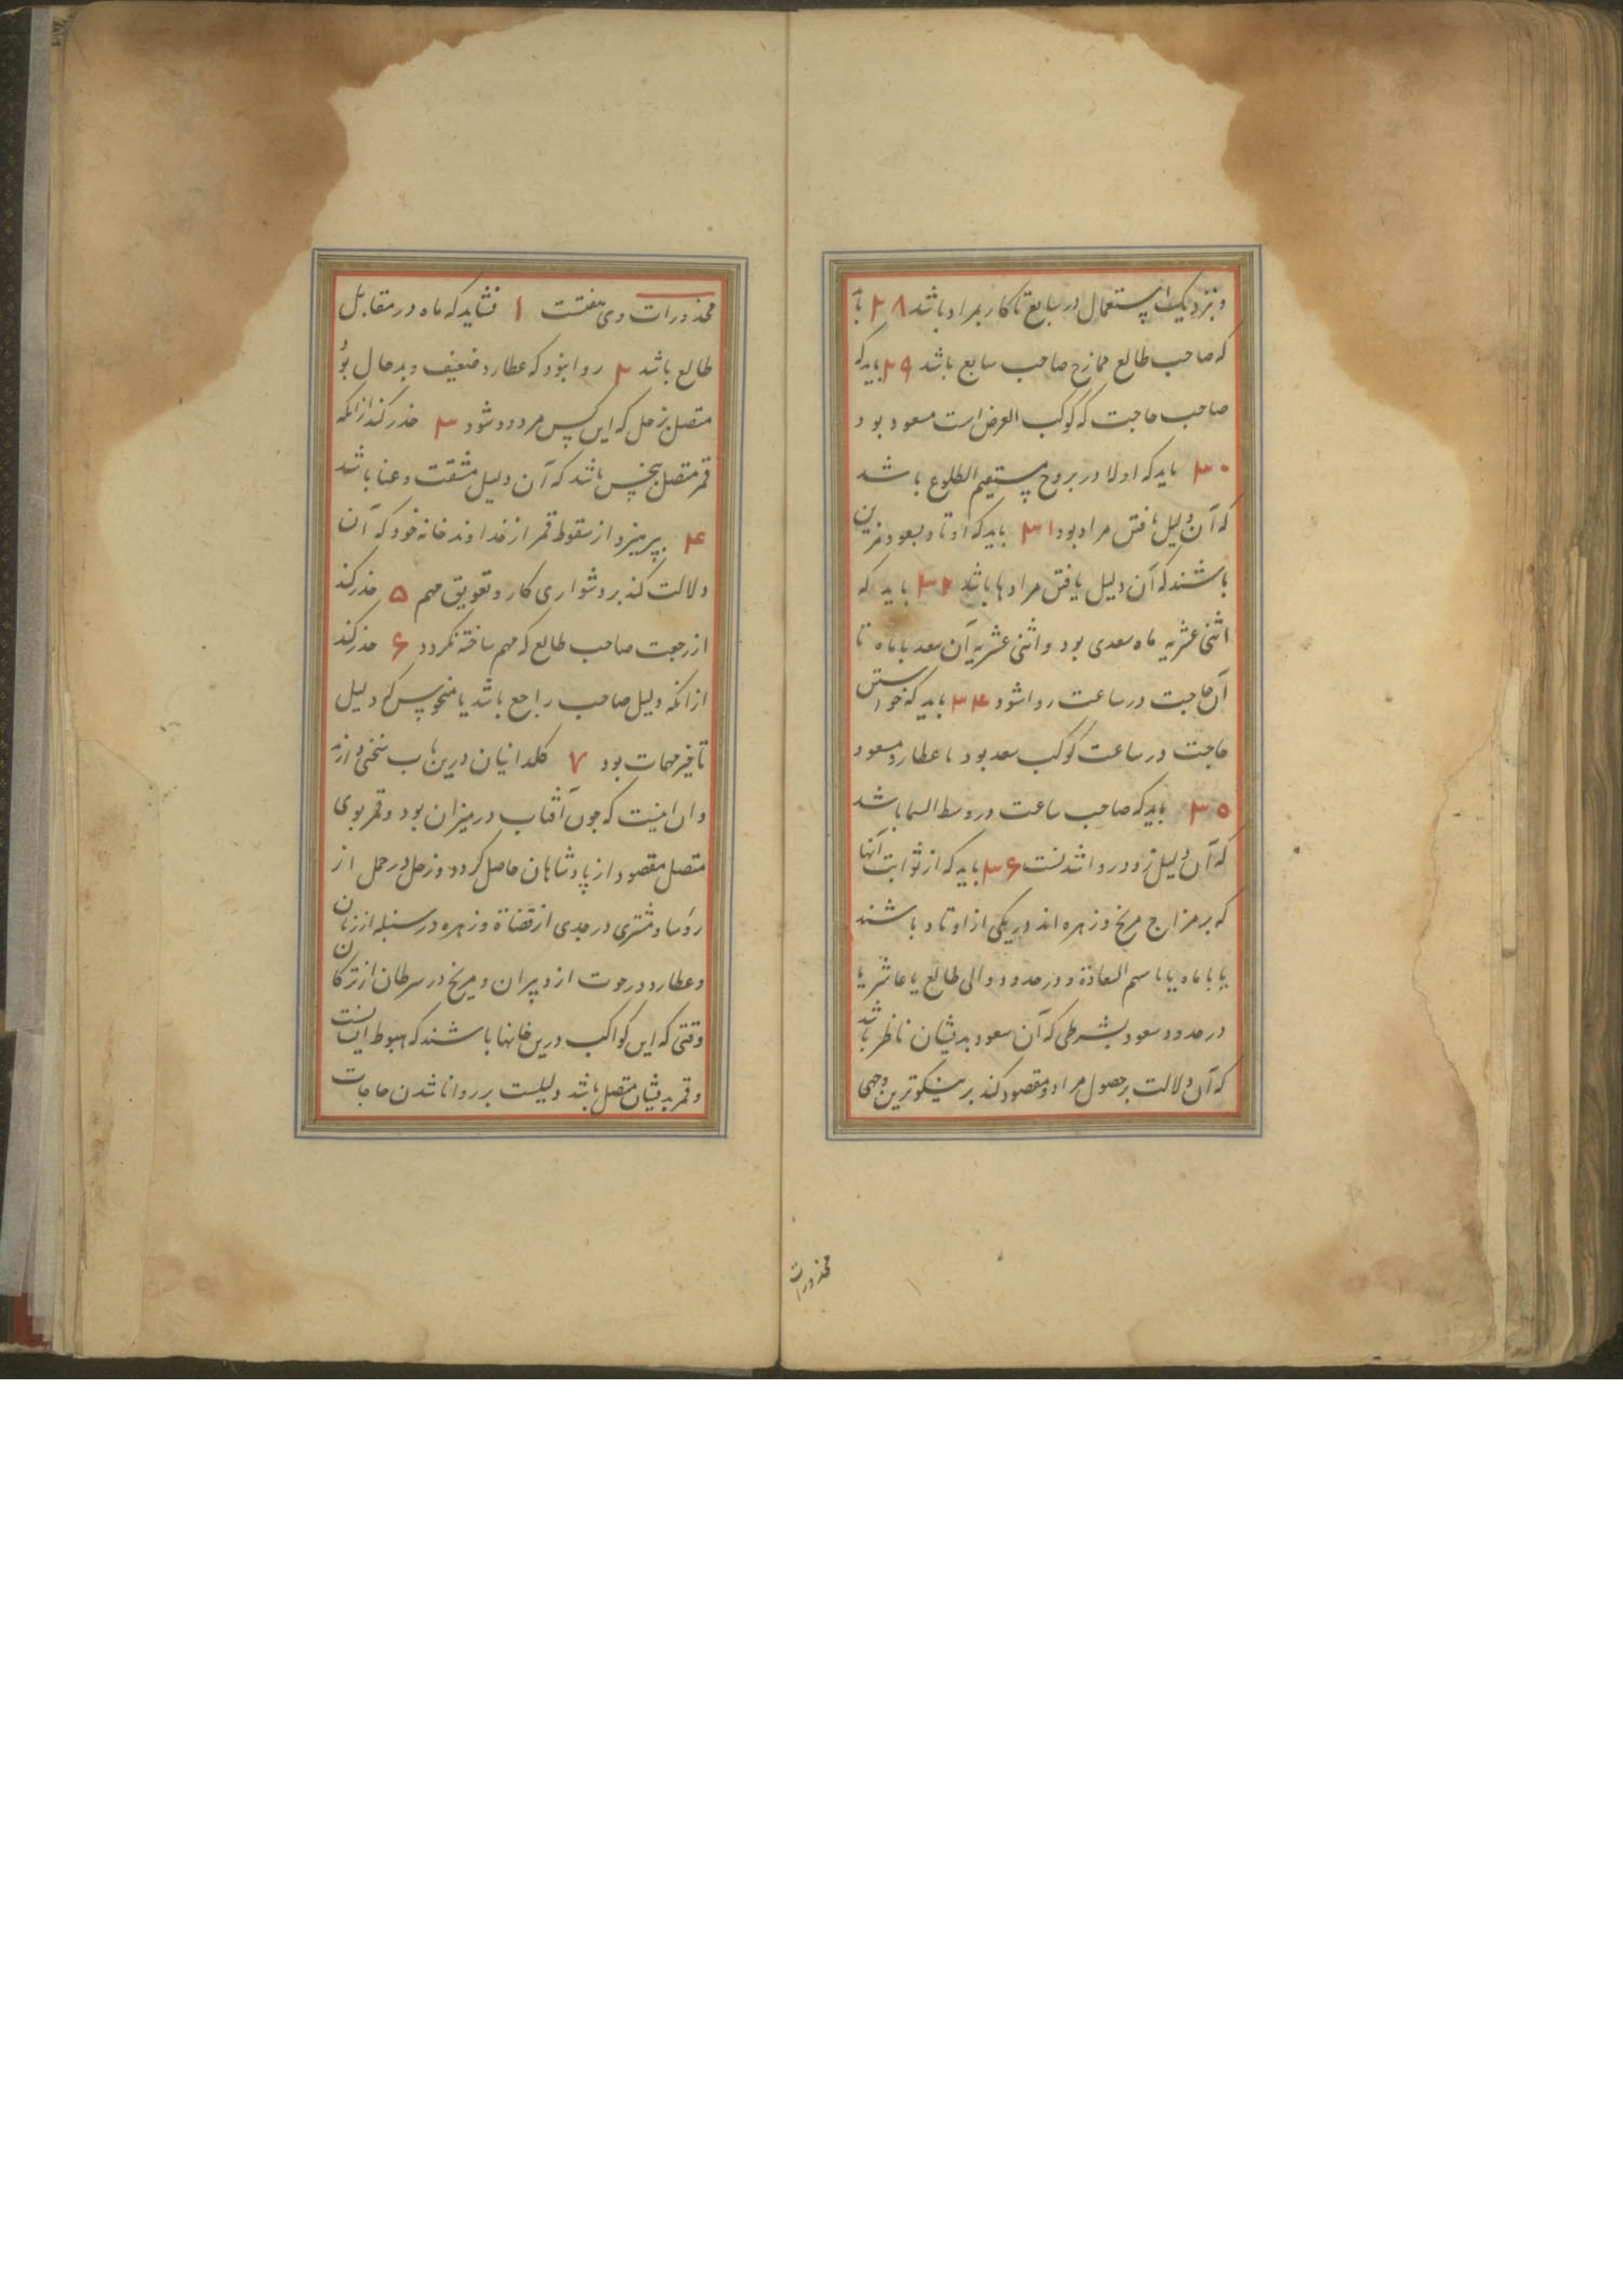 و نزدیک استعمال در سابع تا کار بمراد باشد ۲۸ با
که صاحب طالع ممازج صاحب سابع باشد ۲۹ باید که
صاحب حاجت که کوکب العرض است مسعود بود
۳۰ باید که اولا در بروج مستقیم الطلوع باشد
که آن دلیل یافتن مراد بود ۳۱ باید که اوتاد بسعود مزین
باشند که آن دلیل یافتن مرادها باشد ۳۲ باید که
اثنی عشریه ماه سعدی بود و اثنی عشریه آن سعد با ماه تا
آن حاجت در ساعت روا شود ۳۴ باید که خواستن
حاجت در ساعت کوکب سعد بود با عطارد مسعود
۳۵ باید که صاحب ساعت در وسط السما باشد
که آن دلیل زود روا شدنست ۳۶ باید که از ثوابت آنها
که بر مزاج مریخ و زهره اند در یکی از اوتاد باشند
یا با ماه یا با سهم السعادة و در حدود والی طالع یا عاشر یا
در حدود سعود بشرطی که آن سعود بدیشان ناظر باشد
که آن دلالت بر حصول مراد و مقصود کند بر نیکوترین وجهی
محذورات
محذورات وی هفتست ۱ نشاید که ماه در مقابل
طالع باشد ۲ روا نبود که عطارد ضعیف و بدحال بود
متصل بزحل که این کس مردود شود ۳ حذر کند از انکه
قمر متصل بنحس باشد که آن دلیل مشقت و عنا باشد
۴ بپرهیزد از سقوط قمر از خداوند خانه خود که آن
دلالت کند بر دشواری کار و تعویق مهم ۵ حذر کند
از رجعت صاحب طالع که مهم ساخته نگردد ۶ حذر کند
از انکه دلیل صاحب راجع باشد یا منحوس که دلیل
تاخیر مهمات بود ۷ کلدانیان درین باب سخنی دارند
و ان اینست که چون آفتاب در میزان بود و قمر بوی
متصل مقصود از پادشاهان حاصل کردد و زحل در حمل از
رؤسا و مشتری در جدی از قضاة و زهره در سنبله از زنان
و عطارد در حوت از دبیران و مریخ در سرطان از ترکان
وقتی که این کواکب درین خانها باشند که هبوط ایشانست
و قمر بدیشان متصل باشد دلیلست بر روا ناشدن حاجات